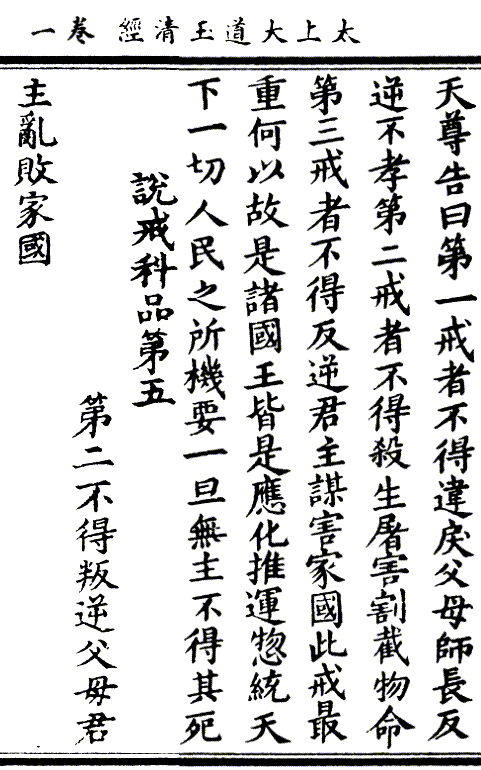 太上大道玉清經 卷一
天尊告曰第一戒者不得違戾父母師長反
逆不孝第二戒者不得殺生屠害割截物命
第三戒者不得反逆君主謀害家國此戒最
重何以故是諸國王皆是應化推運惣統天
下一切人民之所機要一旦無主不得其死
說戒科品第五
第二不得叛逆父母君
主亂敗家國